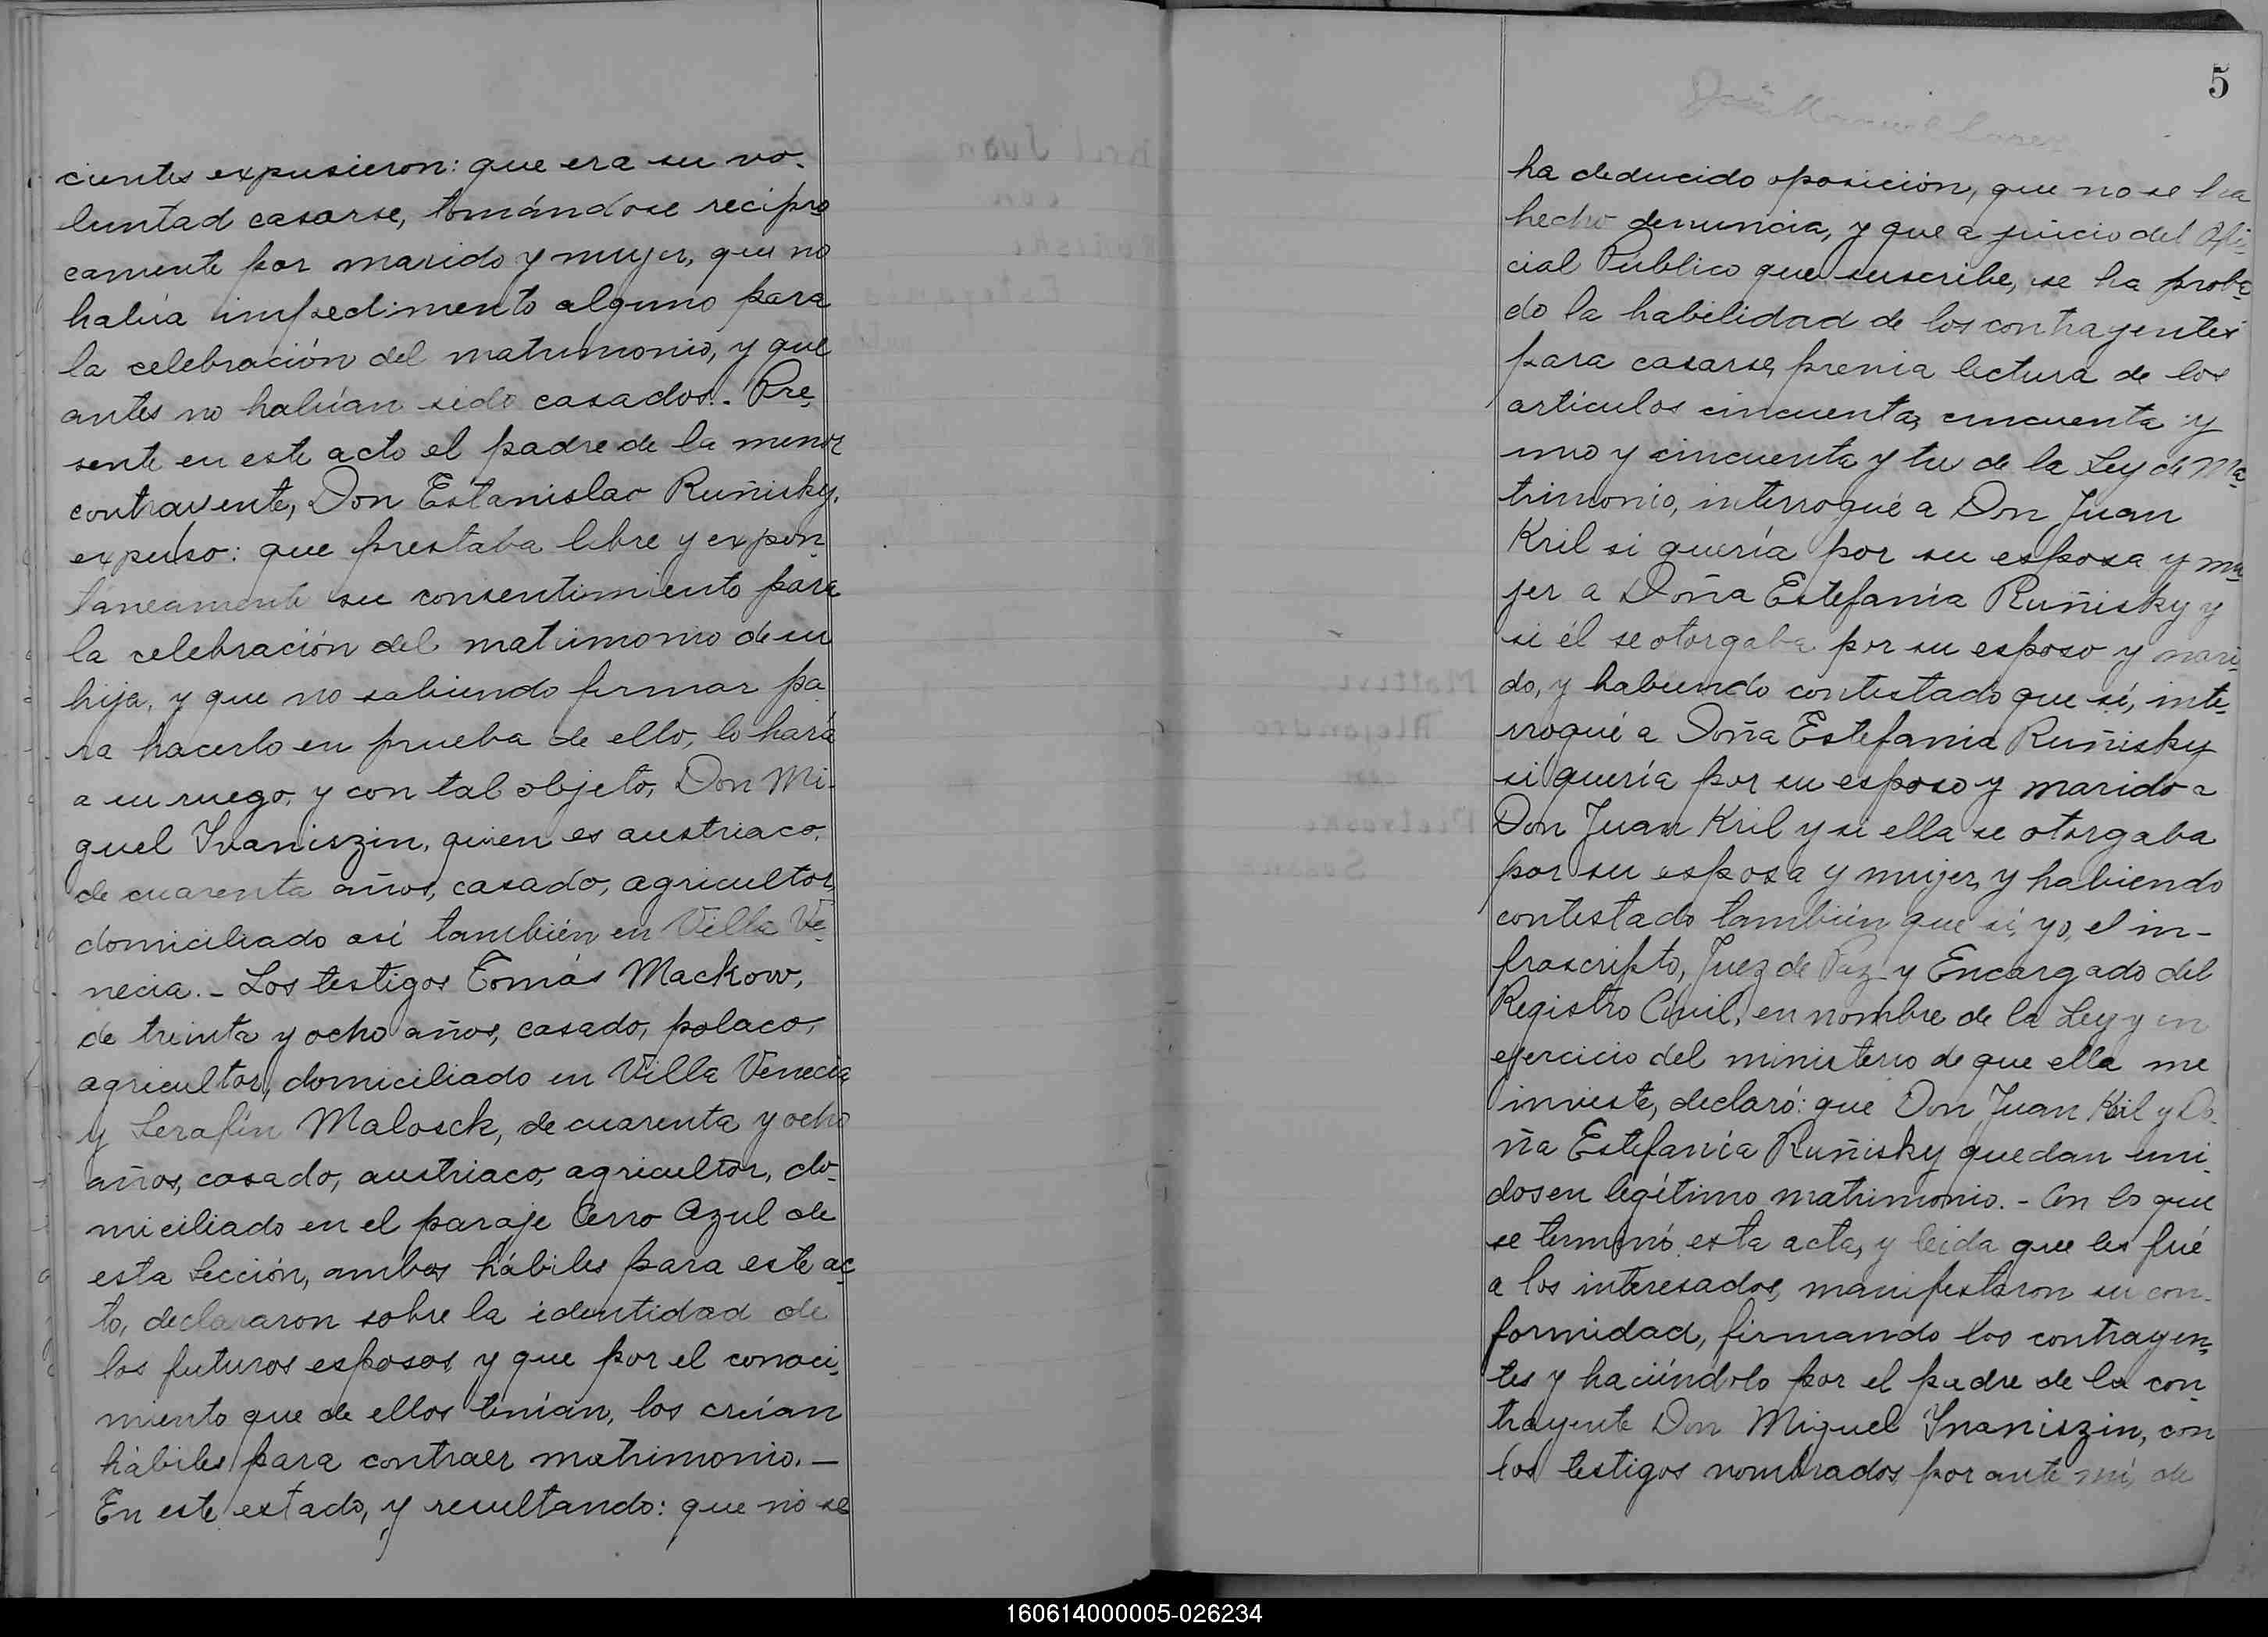 cientes expusieron: que era su vo-
luntad casarse, tomándose recípro
camente por marido y mujer, que no
había impedimento alguno para
la celebración del matrimonio, y que
antes no habían sido casados.- Pre-
sente en este acto el padre de la menor
contrayente, Don Estanislao Ruñisky,
expuso: que prestaba libre y expon-
táneamente su consentimiento para
la celebración del matrimonio de su
hija, y que no sabiendo firmar pa
ra hacerlo en prueba de ello, lo hará
a su ruego, y con tal objeto, Don Mi-
guel Ivaniszin, quien es austriaco,
de cuarenta años, casado, agricultor,
domiciliado así también en Villa Ve-
necia.- Los testigos Tomás Mackow,
de treinta y ocho años, casado, polaco,
agricultor, domiciliado en Villa Venecia
y Serafín Malosck, de cuarenta y ocho
años, casado, austriaco, agricultor, do-
miciliado en el paraje Cerro Azul de
esta Sección, ambos hábiles para este ac-
to, declararon sobre la identidad de
los futuros esposos y que por el conoci-
miento que de ellos tenían, los creían
hábiles para contraer matrimonio.-
En este estado, y resultando: que no se
5
ha deducido oposición, que no se ha
hecho denuncia, y que a juicio del Ofi-
cial Público que suscribe, se ha proba-
do la habilidad de los contrayentes
para casarse, previa lectura de los
artículos cincuenta, cincuenta y
uno y cincuenta y tres de la Ley de Ma-
trimonio, interrogué a Don Juan
Kril si quería por su esposa y mu-
jer a Doña Estefanía Ruñisky y
si él se otorgaba por su esposo y mari-
do, y habiendo contestado que sí, inte-
rrogué a Doña Estefania Ruñisky
si quería por su esposo y marido a
Don Juan Kril y si ella se otorgaba
por su esposa y mujer, y habiendo
contestado también que sí, yo, el in-
frascripto, Juez de Paz y Encargado del
Registro Civil, en nombre de la Ley y en
ejercicio del ministerio de que ella me
inviste, declaró: que Don Juan Kril y Do-
ña Estefanía Ruñisky quedan uni-
dos en legítimo matrimonio.- Con lo que
se terminó esta acta, y leida que les fué
a los interesados, manifestaron su con-
formidad, firmando los contrayen-
tes y haciéndolo por el padre de la con
trayente Don Miguel Ivaniszin, con
los testigos nombrados por ante mí, de
160614000005-026234